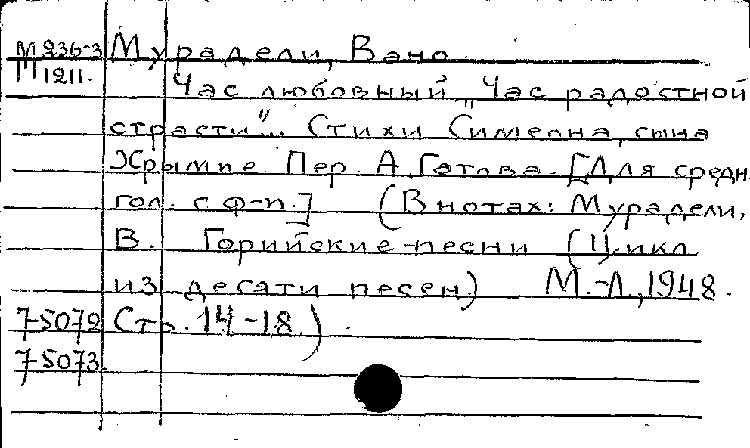 М 236-3 Мурадели, Вано
М 1211.
Час любовный „Час радостной
страсти"... Стихи Симеона, сына
Хрымпе Пер. А. Гатова. [Для средн.
гол. с ф-п.] (В нотах: Мурадели,
В. Горийские песни (Цикл
из десати песен) М.-Л., 1948.
7-5072 Стр. 14-18.)
7-5073